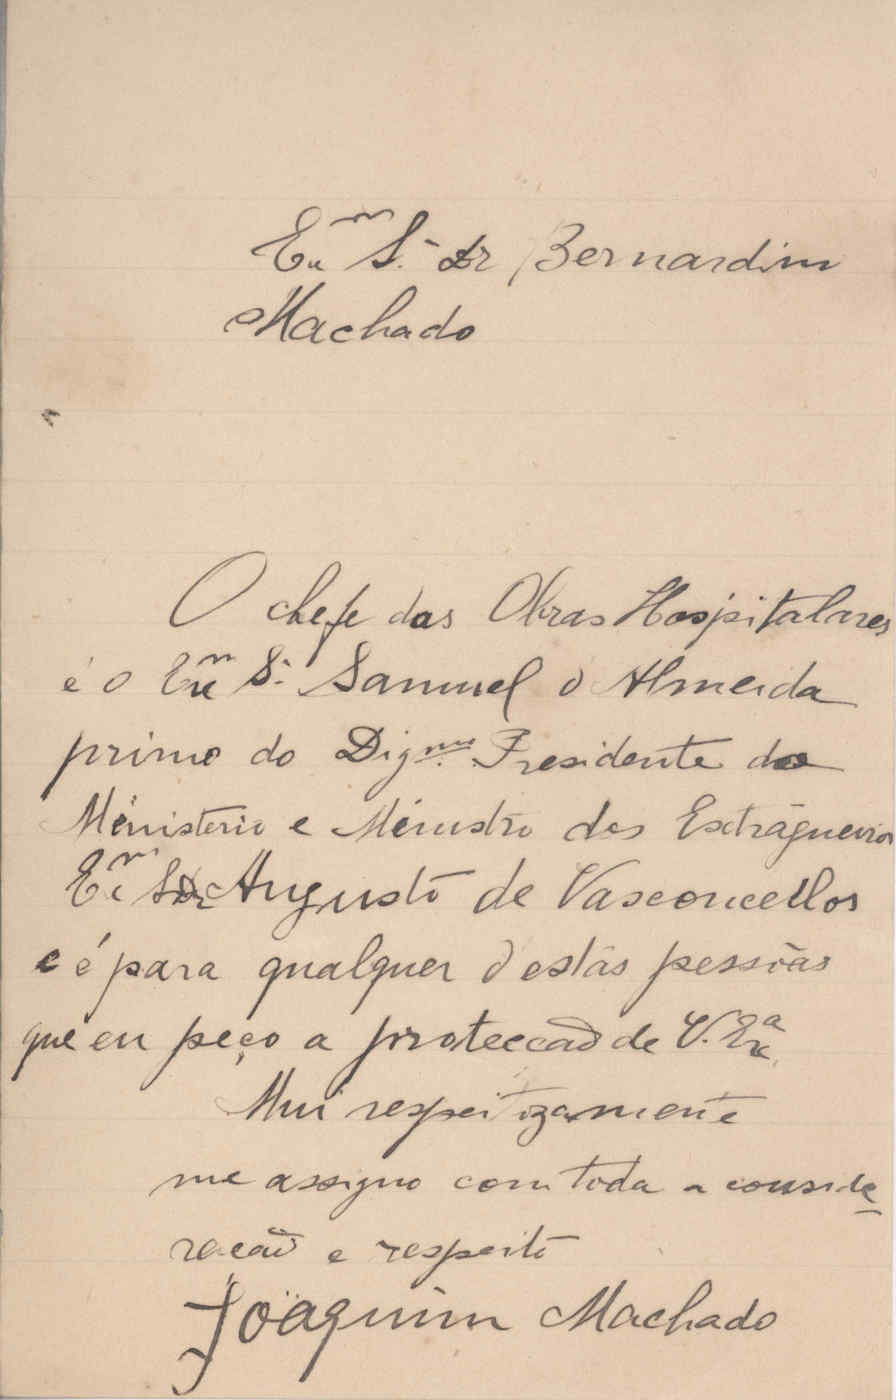 Exm S.r Dr Bernardim
Machado
O chefe das Obras Hospitalares
é o Exm Sr Samuel d Almeida
primo do Digmo. Presidente do
Ménisterio e Ménistro dos Extrâgueiros
Exm Sr Dr Augusto de Vasconcellos
e é para qualquer d'estas pessôas
que eu peço a proteccaõ de V. Exa
Mui respeitozamente
me assigno com toda a conside
racaõ e respeito
Joaquim Machado